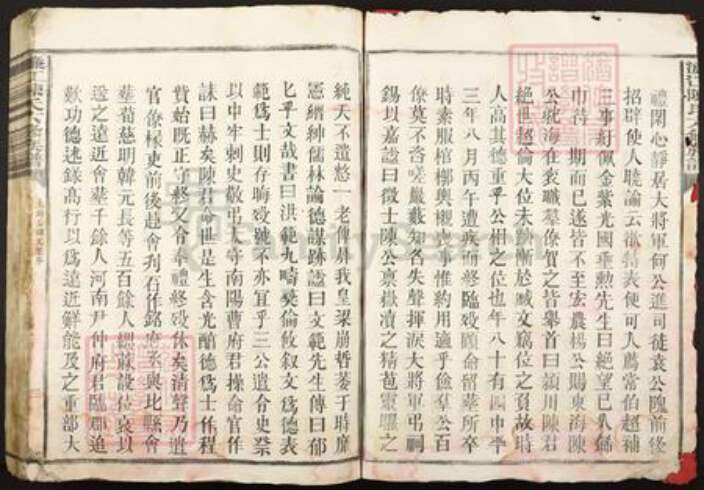 禮閑心靜居大將軍何公進司徒袁公隗前後
招辟使人曉論云欲特表便可入薦當伯超補
三事紆佩金紫光國垂勲先生曰絶望已久飾
巾待期而已遂皆不至宏農楊公賜東海陳
公躭海在袞職羣僚賀之皆舉首曰潁川陳君
絶世超倫大位未躋慚於臧文竊位之負故時
人高其德重乎公相之位也年八十有四中平
三年八月丙午遭疾而終臨歿顧命留塟所卒
時素服棺槨興櫬喪事惟約用適乎儉羣公百
僚莫不咨嗟巖藪知名失聲揮淚大將軍弔祠
錫以嘉諡曰徵士陳公稟嶽瀆之精苞靈曜之
純天不遺憗一老俾屏我皇梁崩哲萎于時靡
憲縉紳儒林論德謀跡諡曰文範先生傳曰郁
乎文哉書曰洪範九疇彛倫攸敘文爲德表
範爲士則存晦歿號不亦宜乎三公遺令史祭
以中牢刺史敬弔太守南陽曹府君操命官作
誄曰赫矣陳君命世是生含光醕德爲士作程
資始既正守終又令奉禮終歿休矣清聲乃遣
官僚椽吏前後赴會刋石作銘府丞與比縣會
塟荀慈明韓元長等五百餘人緦蔴設位哀以
送之遠近會塟千餘人河南尹种府君臨郡追
歎功德述錄高行以爲遠近鮮能及之重部大